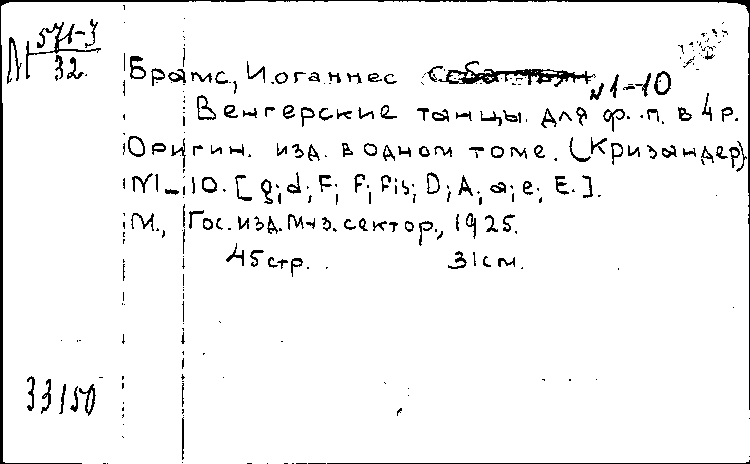 М 571-3
32.
Брамс, Иоганнес
N 1-10
Венгерские танцы для ф.-п. в 4 р.
Оригин. изд. в одном томе. (Кризандер).
N1-10. [g; d; F; f; fis; D; A; a; e; E.].
М., Гос. изд. Муз. сектор., 1925.
45 стр. 31 см.
33150